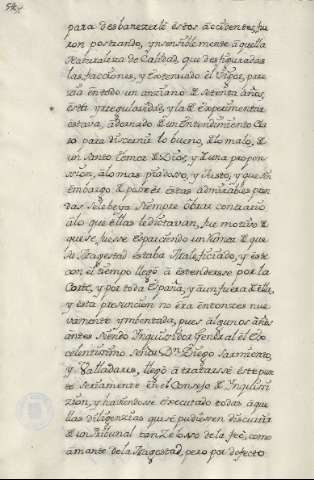 para desbanezerlè èstos accidentes, fue
ron postrando, y insensiblemente àquella
Naturaleza de Calidad, que desfiguradas
las facciones, y extenuado èl vigor, pare
zia èn todo un anziano de setenta años,
èsta yrregularidad, y la de experimentar
èstava, adornado de un èntendimiento Cla
ro para discernir lo bueno, de lo malo, de
un Santo temor de Dios, y de una propen
ssion, à lo mas piadoso, y Justo, y que sin
embargo de poseèr èstas admirables pren
das se le beya siempre obrar contrario
à lo que èllas le dictavan, fue motivo de
que se fuesse Esparciendo un Rumor de que
su Magestad èstaba Malificiado, y èste
con èl tiempo llegò à èstenderse por la
Corte, y por toda España, y aun fuera de ella,
y èsta presuncion no èra èntonzes nue
vamente ynbentada, pues algunos años
antes siendo Ynquisidor General èl Ex
celentissimo señor Dn. Diego Sarmiento,
y Valladares, llegò à tratarsse èste pun
to seriamente èn el Consejo de Ynquisi
zion, y haviendose èxecutado todas à que
llas diligenzias que se pudiessen discurrir
de un Tribunal tan Zeloso de la feè, como
amante de la Magestad, pero por defecto